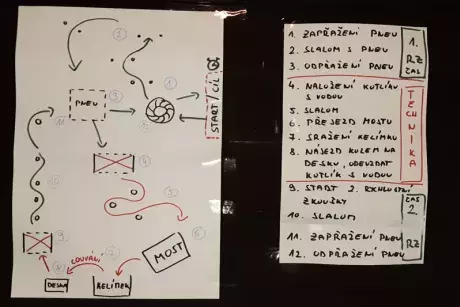 PNEU
START
CÍL
COUVÁNÍ
DESKA
KELÍMEK
MOST
1. ZAPŘAŽENÍ PNEU
2. SLALOM S PNEU
3. ODPŘAŽENÍ PNEU
1.
RZ
ČAS
4. NALOŽENÍ KOTLÍKU
S VODOU
5. SLALOM
6. PŘEJEZD MOSTU
7. SRAŽENÍ KELÍMKU
8. NÁJEZD KOLEM NA
DESKU, ODEVZDAT
KOTLÍK S VODOU
TECHNIKA
9. START 2. RYCHLOSTNÍ
ZKOUŠKY
10. SLALOM
11. ZAPŘAŽENÍ PNEU
12. ODPŘAŽENÍ PNEU
ČAS
2.
RZ